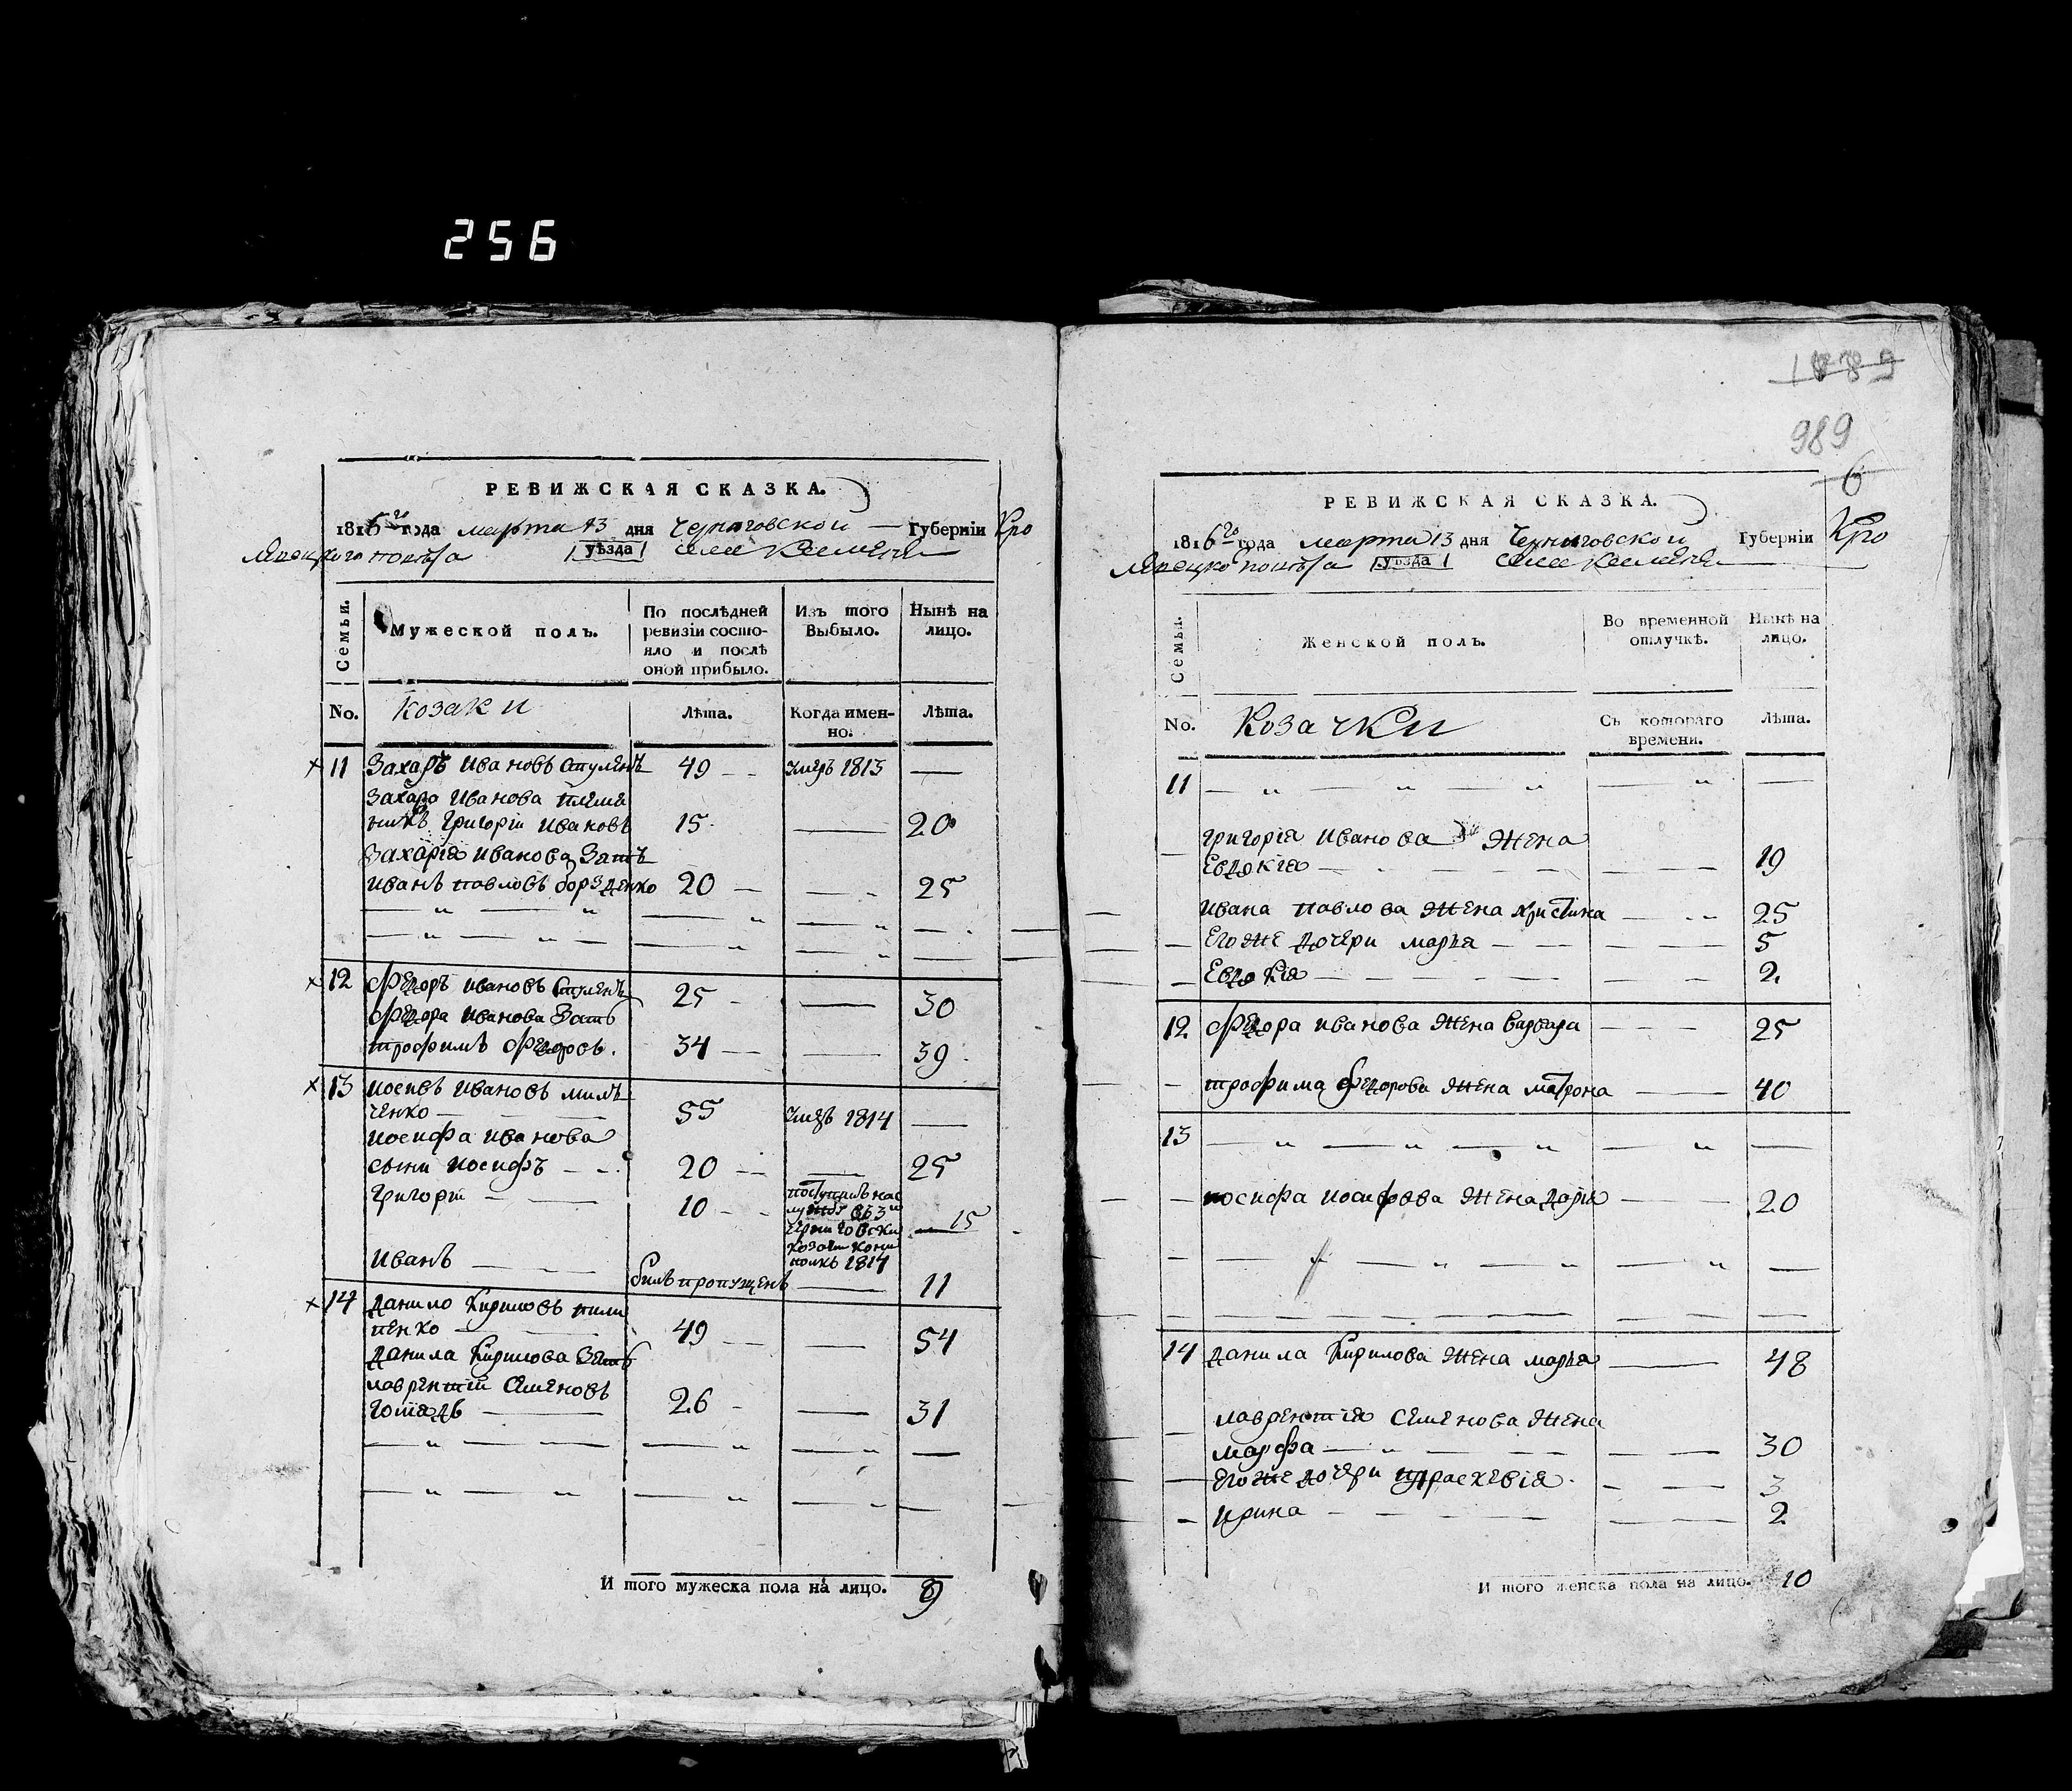 256
РЕВИЖСКАЯ СКАЗКА.
1816го года марта 13 дня Черниговской Губерніи Кро
левецкого повѣта уѣзда село
Семьи.
Мужеской полъ.
По послѣдней ревизіи состояло и послѣ оной прибыло.
Изъ того Выбыло.
Нынѣ на лицо.
No. Козаки Лѣта. Когда именно. Лѣта.
11 Захаръ Ивановъ 49 умеръ 1813
Захара Иванова племя
никъ Григорій Ивановъ 15 20
Захарія Иванова Зять
Иванъ Павловъ 20 25
12 Федоръ Ивановъ 25 30
Федора Иванова Зять
Трофимъ Федоровъ. 34 39
13 Иосивъ Ивановъ мил
ченко 55 умеръ 1814
Иосифа Иванова
сыни Иосифъ 20 25
Григорій 10 поступилъ 15
козачи
полкъ
Иванъ билъ пропущенъ 11
14 Данило Кириловъ пили
пенко 49 54
Данила Кирилова Зять
Лаврентій Семеновъ 26 31
И того мужеска пола на лицо. 9
1885
989
6
РЕВИЖСКАЯ СКАЗКА.
1816го года марта 13 дня Черниговской Губерніи Кро
левецко повѣта уѣзда село
Семьи.
Женской полъ.
Во временной отлучкѣ.
Нынѣ на лицо.
No. Козачки Съ котораго времени. Лѣта.
11
Григорія Иванова Жена
Евдокія 19
Ивана Павлова Жена Христина 25
Его же дочери марья 5
Евдокія 2
12 Федора Иванова Жена Варвара 25
Трофима Федорова Жена матрона 40
13
Иосифа Иосифова Жена Дарія 20
14 Данила Кирилова Жена марья 48
Лаврентія Семенова Жена
марфа 30
Его же дочери Праскевія 3
Ирина 2
И того женска пола на лицо. 10